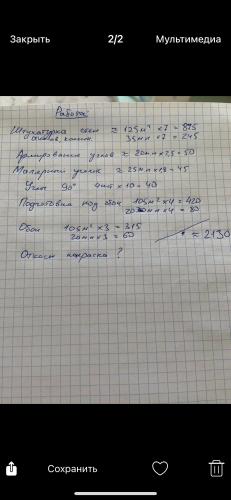 Закрыть 2/2 Мультимедиа
Работа:
Штукатурка стен ≈ 125м² × 7 = 875
откосов, 35мп × 7 = 245
Армирование углов ≈ 20мп × 2,5 = 50
Малярный уголок ≈ 25мп × 1,8 = 45
Углы 90° 4шт × 10 = 40
Подготовка под обои 105м² × 4 = 420
20мп × 4 = 80
Обои 105м² × 3 = 315
20мп × 3 = 60
≈ 2130
Откосы покраска ?
Сохранить